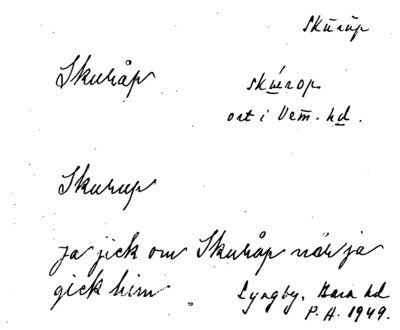 skūrŭp
Skuråp
skúrop
ort i Vem. hd.
Skurup
ja jick om Skuråp när ja
gick him
Lyngby, Bara hd
P. A. 1949.